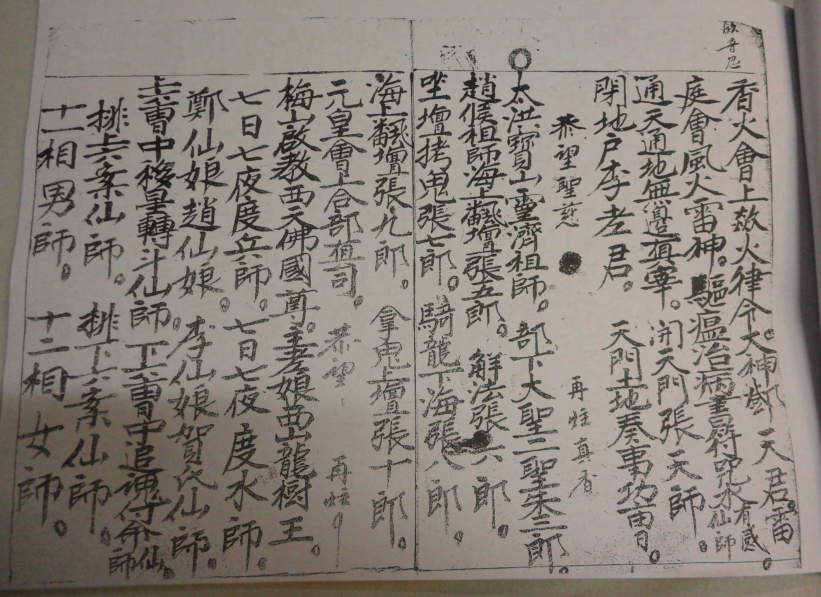 啟奇尼
香火會上燄火律令大神鄧天君雷
庭會風火雷神。驅瘟治病書符咒水有感仙師
通天通地無邊真宰。開天門張天師。
閉地戶李老君。天門土地奏事功曹。
恭望聖慈 再炷真香
太洪寶山靈濟祖師。部下大聖二聖朱三郎。
趙侯祖師海上翻壇張五郎。解法張六郎。
坐壇拷鬼張七郎。騎龍下海張八郎。
海上翻壇張九郎。拿鬼上壇張十郎。
元皇會上合部真司。恭望 再炷
梅山啟教西天佛國尊。主老娘西山龍樹王。
七日七夜度兵師。七日七夜度水師。
鄭仙娘趙仙娘。李仙娘賀氏仙師。
上曹中移星轉斗仙師。下曹中追魂付命仙師
排上六案仙師。排下六案仙師。
十二相男師。十二相女師。